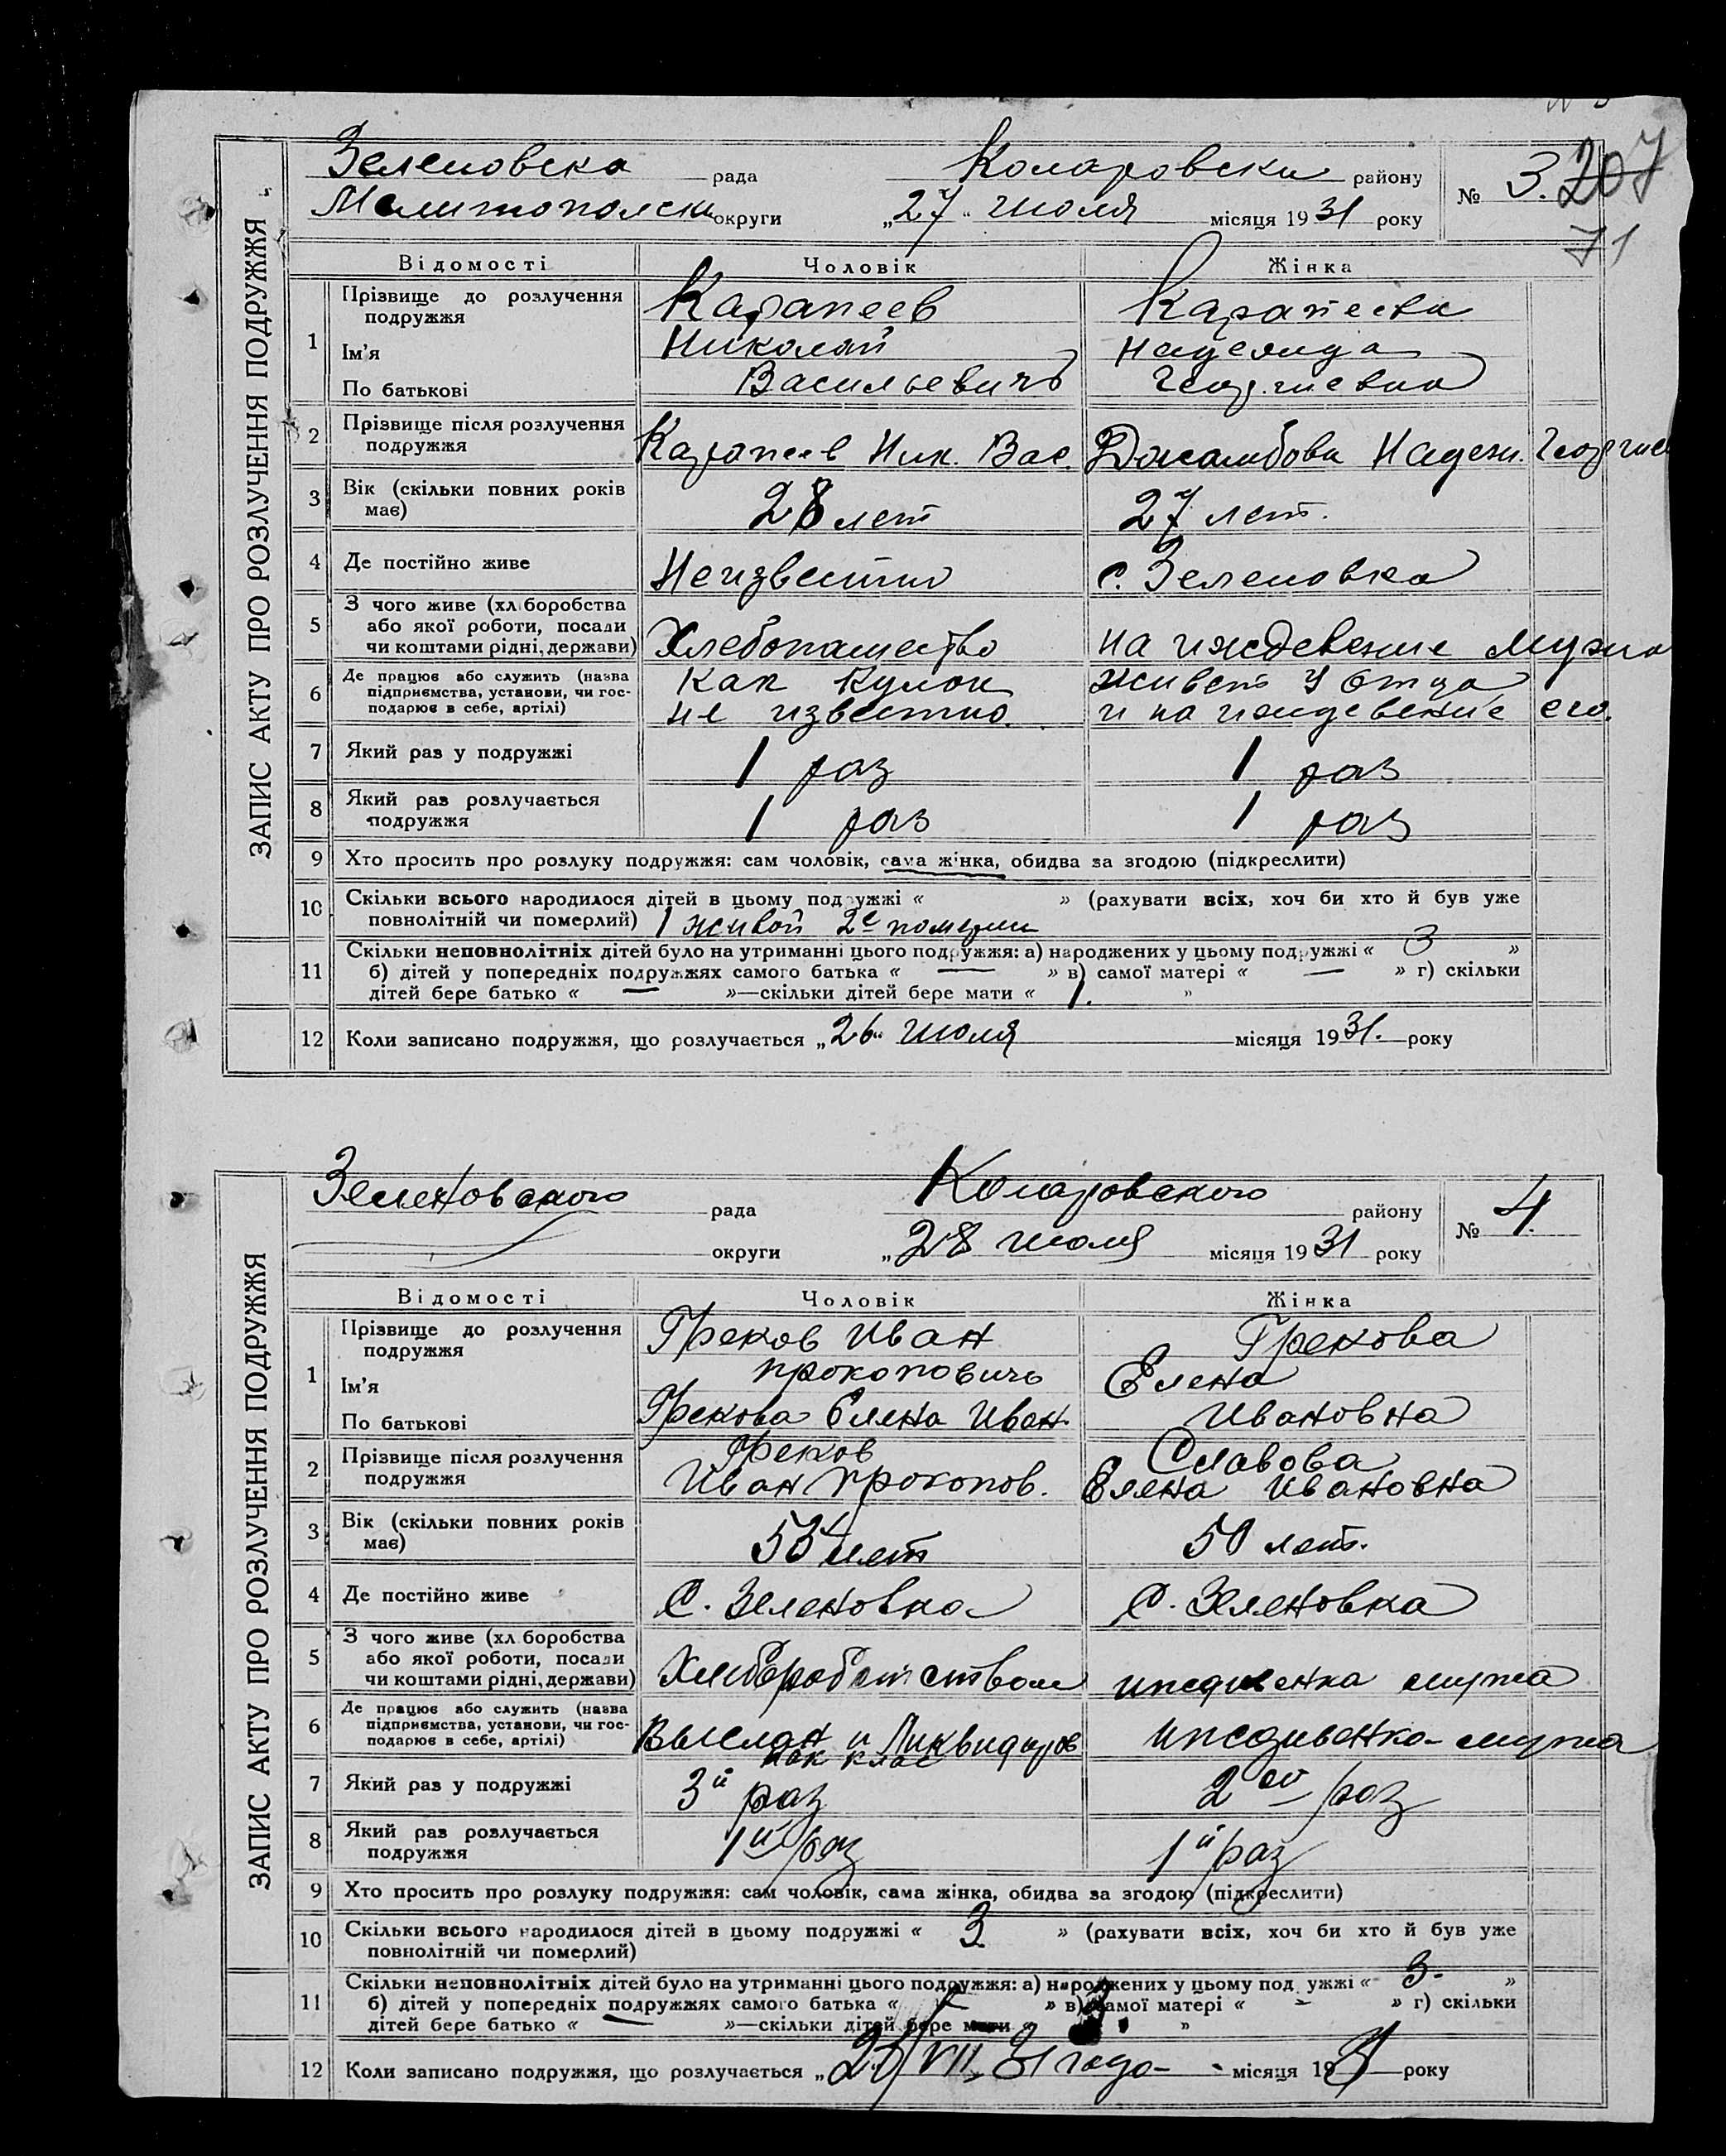 ЗАПИС АКТУ ПРО РОЗЛУЧЕННЯ ПОДРУЖЖЯ
Зеленовска рада Коларовски району № 3. 207
Мелитопольски округи „27“ июля місяця 1931 року
71
Відомості Чоловік Жінка
1 Прізвище до розлучення подружжя Карапеев Карапеева
Ім’я Николай Надежда
По батькові Васильевичъ Георгиевна
2 Прізвище після розлучення подружжя Карапеев Ник. Вас. Надежд. Георгиев
3 Вік (скільки повних років має) 28 лет 27 лет.
4 Де постійно живе Неизвестно с. Зеленовка
5 З чого живе (хл боробства
або якої роботи, посади
чи коштами рідні, держави) Хлебопашество на иждевение мужа
6 Де працює або служить (назва
підприємства, установи, чи гос-
подарює в себе, артілі) Как кулак не известно. живет у отца и на иждевение его.
7 Який раз у подружжі 1 раз 1 раз
8 Який раз розлучається подружжя 1 раз 1 раз
9 Хто просить про розлуку подружжя: сам чоловік, сама жінка, обидва за згодою (підкреслити)
10 Скільки всього народилося дітей в цьому подружжі « » (рахувати всіх, хоч би хто й був уже
повнолітній чи померлий) 1 живой 2е померли
11 Скільки неповнолітніх дітей було на утриманні цього подружжя: а) народжених у цьому подружжі « 3 »
б) дітей у попередніх подружжях самого батька « — » в) самої матері « — » г) скільки
дітей бере батько « — »—скільки дітей бере мати « 1. »
12 Коли записано подружжя, що розлучається „26“ июля місяця 1931. року
ЗАПИС АКТУ ПРО РОЗЛУЧЕННЯ ПОДРУЖЖЯ
Зеленовского рада Коларовского району № 4.
округи „28 июля місяця 1931 року
Відомості Чоловік Жінка
1 Прізвище до розлучення подружжя Греков Иван Грекова
Ім’я прокоповичъ Елена
По батькові Грекова Елена Иван. Ивановна
2 Прізвище після розлучення подружжя Греков Иван Прокопов. Славова Елена Ивановна
3 Вік (скільки повних років має) лет 50 лет.
4 Де постійно живе С. Зеленовка С. Зеленовка
5 З чого живе (хл боробства
або якої роботи, посади
чи коштами рідні, держави) мужа
6 Де працює або служить (назва
підприємства, установи, чи гос-
подарює в себе, артілі) Выслан и Ликвидиров как клас иждивенка мужа
7 Який раз у подружжі 3й раз 2ой раз
8 Який раз розлучається подружжя 1й раз 1й раз
9 Хто просить про розлуку подружжя: сам чоловік, сама жінка, обидва за згодою (підкреслити)
10 Скільки всього народилося дітей в цьому подружжі « 3 » (рахувати всіх, хоч би хто й був уже
повнолітній чи померлий)
11 Скільки неповнолітніх дітей було на утриманні цього подружжя: а) народжених у цьому подружжі « 3. »
б) дітей у попередніх подружжях самого батька « » в) самої матері « - » г) скільки
дітей бере батько « — »—скільки дітей бере мати « »
12 Коли записано подружжя, що розлучається „ VII 31 года місяця 1931 року